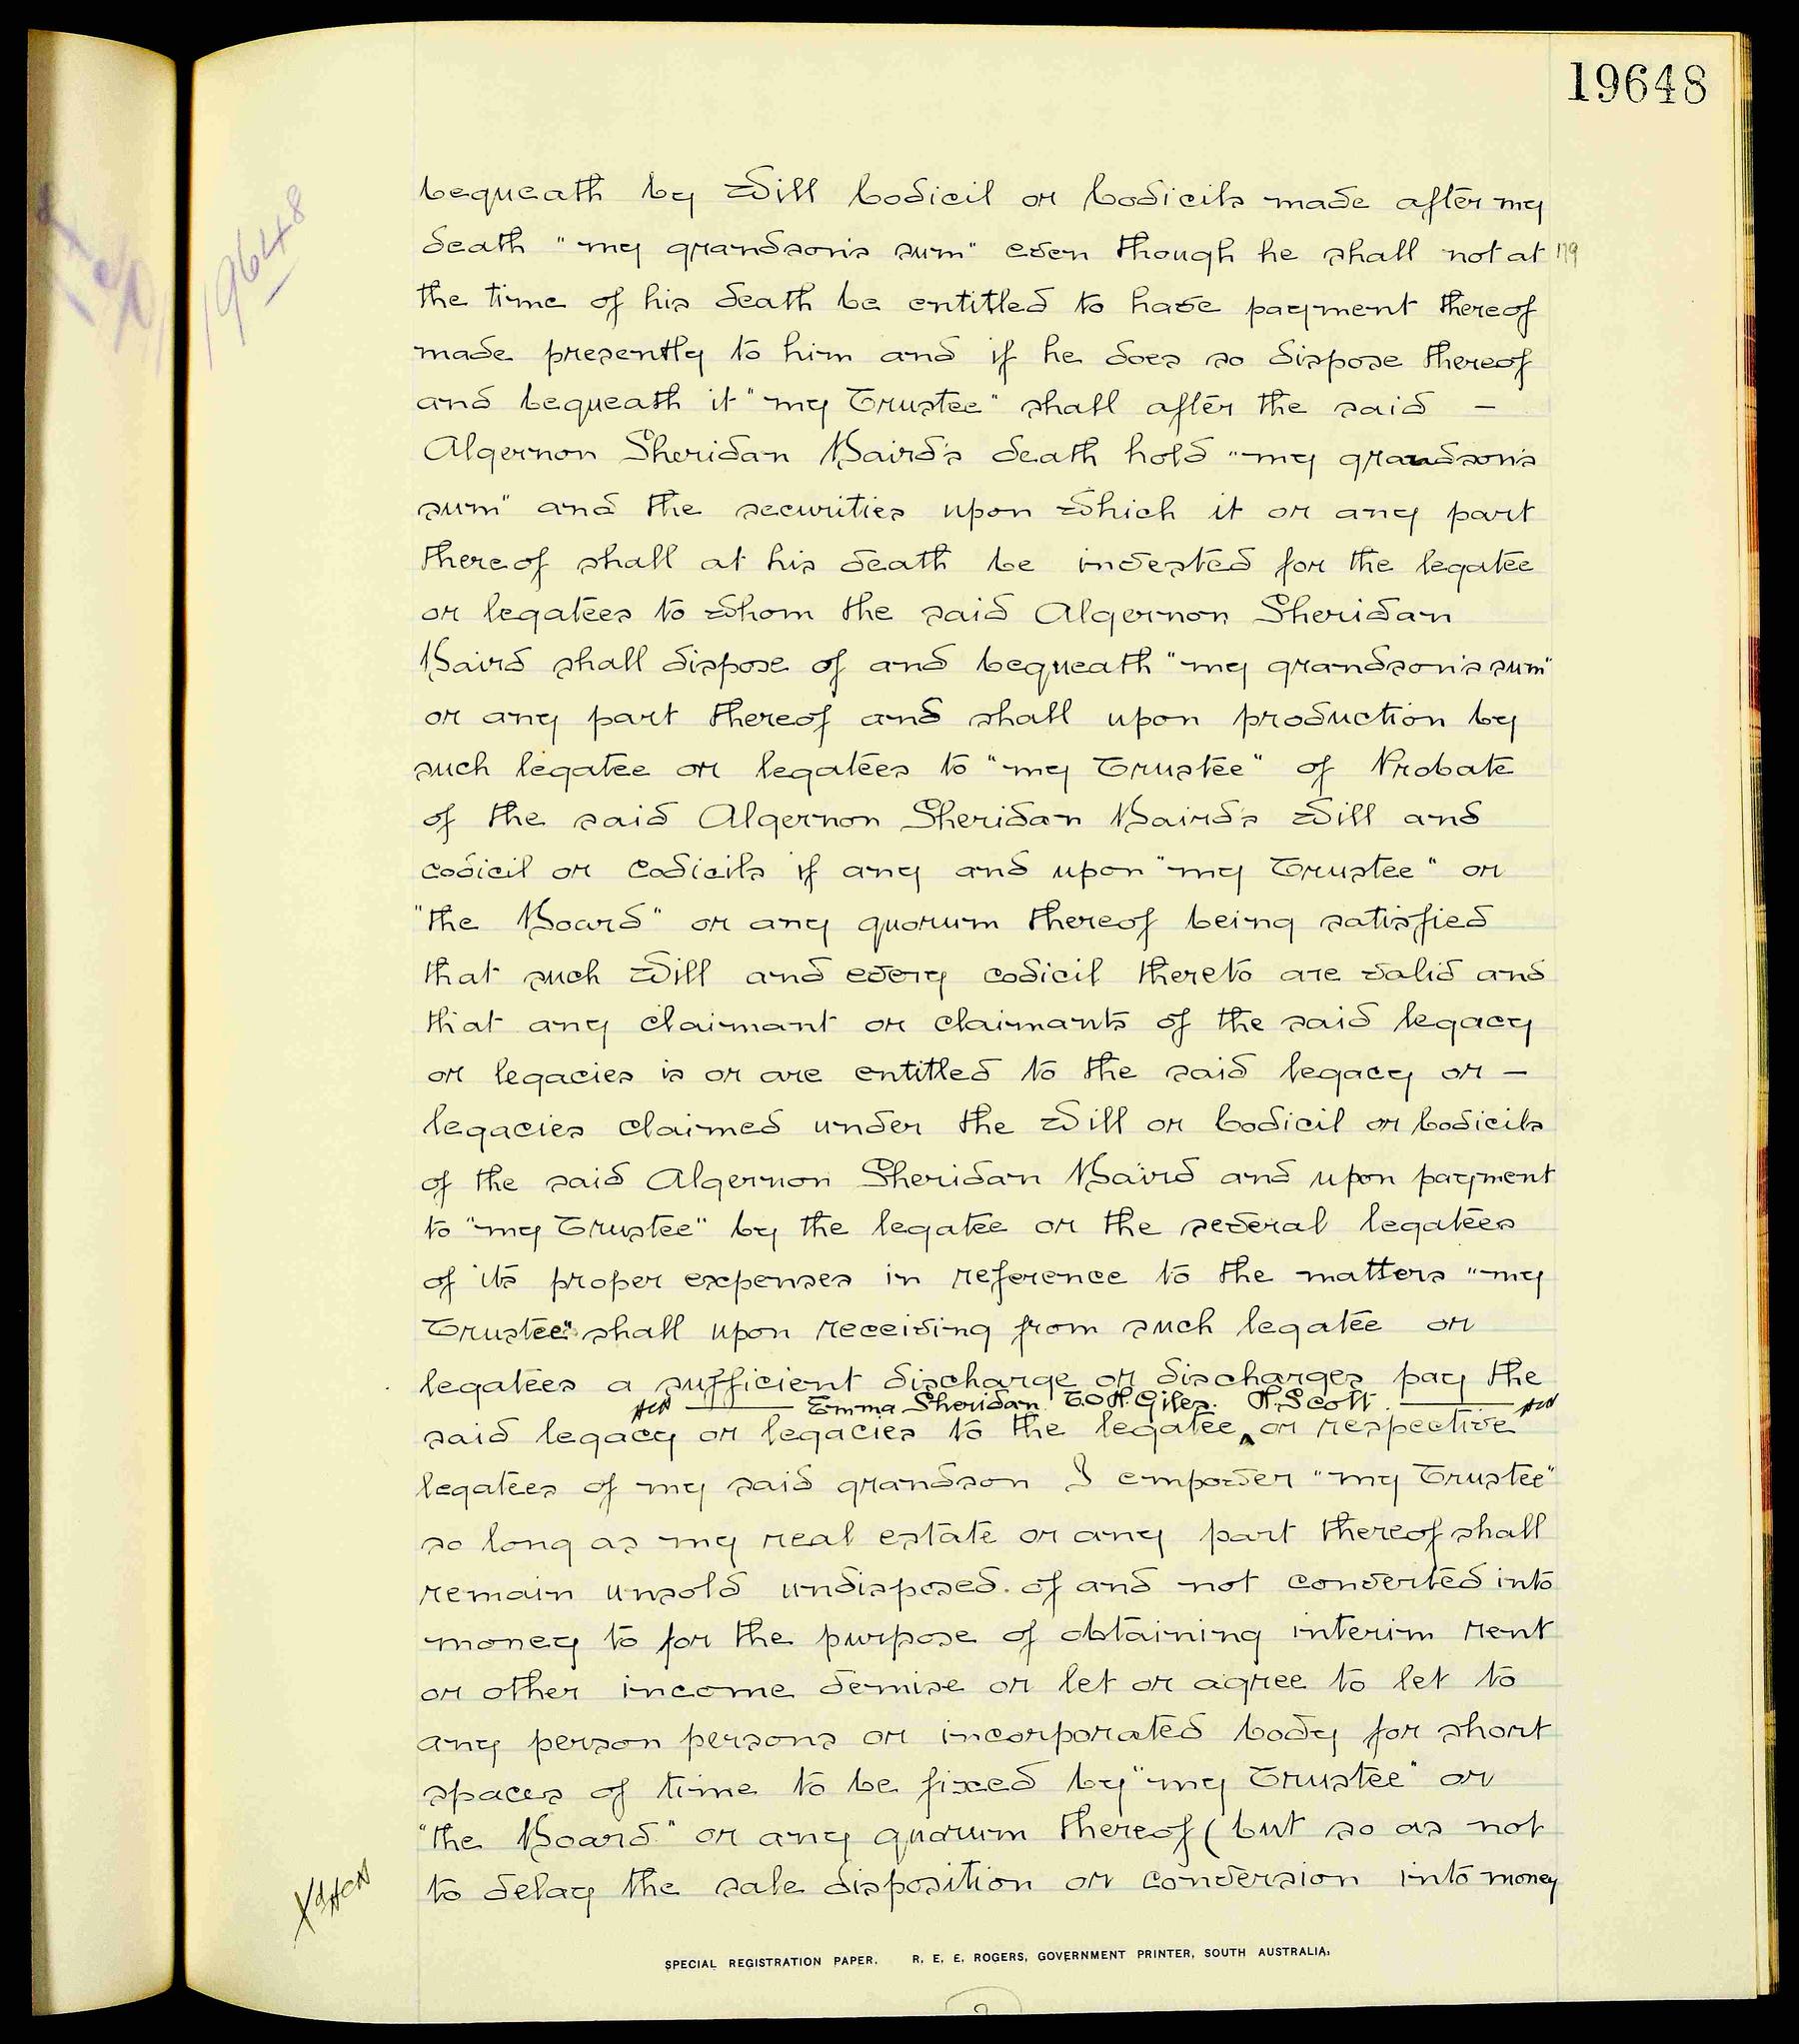 19648
19648
bequeath by Will Codicil or Codicils made after my
death "my grandson's sum" even though he shall not at
the time of his death be entitled to have payment thereof
made presently to him and if he does so dispose thereof
and bequeath it "my Trustee" shall after the said –
Algernon Sheridan Baird's death hold "my grandson's
sum" and the securities upon which it or any part
thereof shall at his death be invested for the legatee
or legatees to whom the said Algernon Sheridan
Baird shall dispose of and bequeath "my grandson's sum"
or any part thereof and shall upon production by
such legatee or legatees to "my Trustee" of Probate
of the said Algernon Sheridan Baird's Will and
codicil or codicils if any and upon "my Trustee" or
"the Board" or any quorum thereof being satisfied
that such Will and every codicil thereto are valid and
that any claimant or claimants of the said legacy
or legacies is or are entitled to the said legacy or –
legacies claimed under the Will or Codicil or Codicils
of the said Algernon Sheridan Baird and upon payment
to "my Trustee" by the legatee or the several legatees
of its proper expenses in reference to the matters "my
Trustee" shall upon receiving from such legatee or
legatees a sufficient discharge or discharges pay the
Emma Sheridan T.O'H. Giles. H. Scott.
said legacy or legacies to the legatee or respective
legatees of my said grandson I empower "my Trustee"
so long as my real estate or any part thereof shall
remain unsold undisposed of and not converted into
money to for the purpose of obtaining interim rent
or other income demise or let or agree to let to
any person persons or incorporated body for short
spaces of time to be fixed by "my Trustee" or
"the Board" or any quorum thereof (but so as not
to delay the sale disposition or conversion into money
SPECIAL REGISTRATION PAPER. R. E. E. ROGERS, GOVERNMENT PRINTER, SOUTH AUSTRALIA.